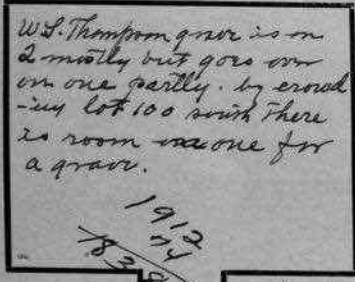 W.S. Thompson grave is on
2 mostly but goes over
on one partly. by crowd
-ing lot 100 south there
is room on one for
a grave.
1912
74
1838